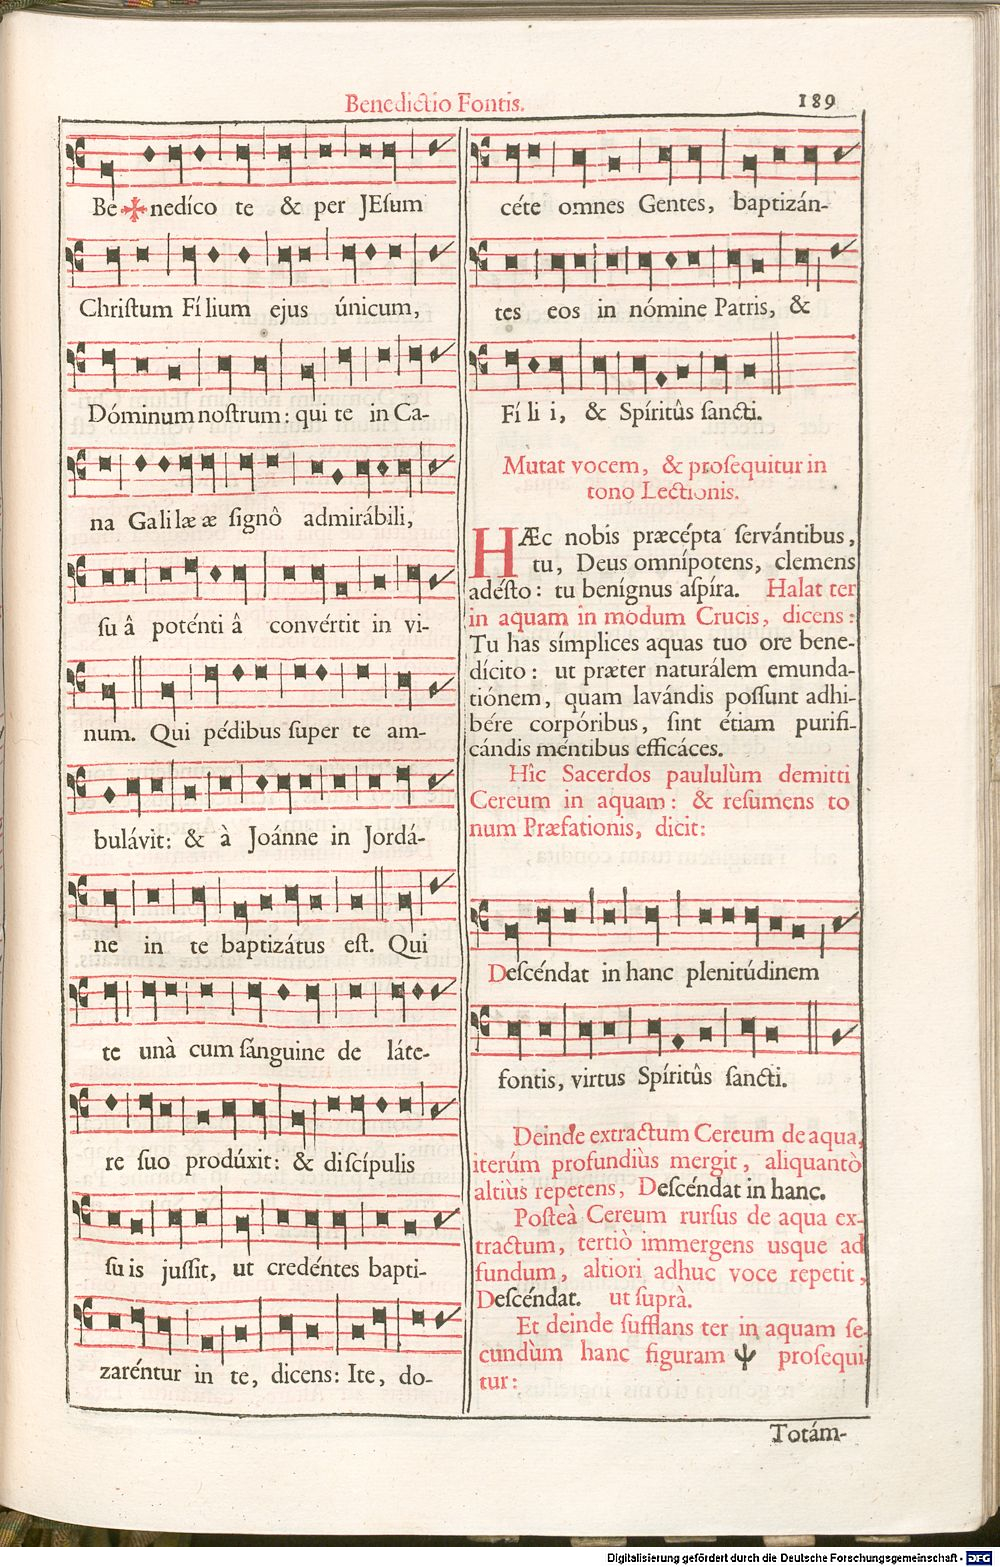 Benedictio Fontis.
189
Be ✠ nedíco te & per JEſum
Chriſtum Fí lium ejus únicum,
Dóminum noſtrum: qui te in Ca-
na Gali læ æ ſignô admirábili,
ſu â poténti â convértit in vi-
num. Qui pédibus ſuper te am-
bulávit: & à Joánne in Jordá-
ne in te baptizátus eſt. Qui
te unà cum ſánguine de láte-
re ſuo prodúxit: & diſcípulis
ſu is juſſit, ut credéntes bapti-
zaréntur in te, dicens: Ite, do-
céte omnes Gentes, baptizán-
tes eos in nómine Patris, &
Fí li i, & Spíritûs ſancti.
Mutat vocem, & proſequitur in
tono Lectionis.
HÆc nobis præcépta ſervántibus,
tu, Deus omnípotens, clemens
adéſto: tu benígnus aſpíra. Halat ter
in aquam in modum Crucis, dicens:
Tu has símplices aquas tuo ore bene-
dícito: ut præter naturálem emunda-
tiónem, quam lavándis poſſunt adhi-
bére corpóribus, ſint étiam purifi-
cándis méntibus efficáces.
Hîc Sacerdos paululùm demitti
Cereum in aquam: & reſumens to
num Præfationis, dicit:
Deſcéndat in hanc plenitúdinem
fontis, virtus Spíritûs ſancti.
Deinde extractum Cereum de aqua,
iterúm profundiùs mergit, aliquantò
altiùs repetens, Deſcéndat in hanc.
Poſteà Cereum rurſus de aqua ex-
tractum, tertiò immergens usque ad
fundum, altiori adhuc voce repetit,
Deſcéndat. ut ſuprà.
Et deinde ſufflans ter in aquam ſe-
cundùm hanc figuram Ψ proſequi
tur:
Totám-
Digitalisierung gefördert durch die Deutsche Forschungsgemeinschaft - DFG